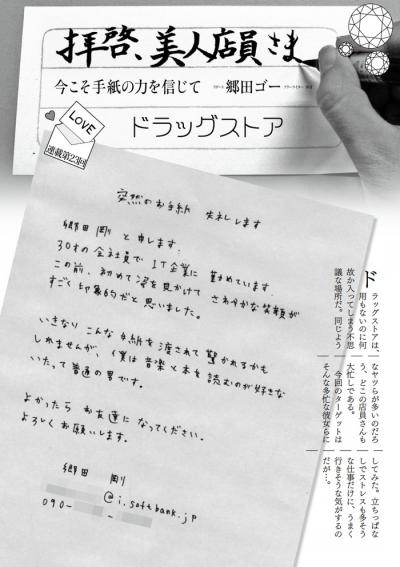 拝啓、美人店員さま
今こそ手紙の力を信じて
リポート 郷田ゴー フリーライター
LOVE
連載第23回
ドラッグストア
突然のお手紙 失礼します
郷田 剛 と申します。
30才の会社員で IT企業に 勤めています
この前、初めて姿を見かけて さわやかな笑顔が
すごく印象的だと思いました。
いきなり こんな手紙を渡されて 驚かれるかも
しれませんが、僕は音楽と本を読むのが好きな
いたって普通の男です。
よかったら お友達に なってください。
よろしくお願いします。
郷田 剛
@i.softbank.jp
090-
ドラッグストアは、
用もないのに何
故か入ってしまう不思
議な場所だ。同じよう
なヤツらが多いのだろ
う、どこの店員さんも
大忙しである。
今回のターゲットは
そんな多忙な彼女らに
してみた。立ちっぱな
しでストレスも多そう
な仕事だけに、うまく
行きそうな気がするの
だが…。